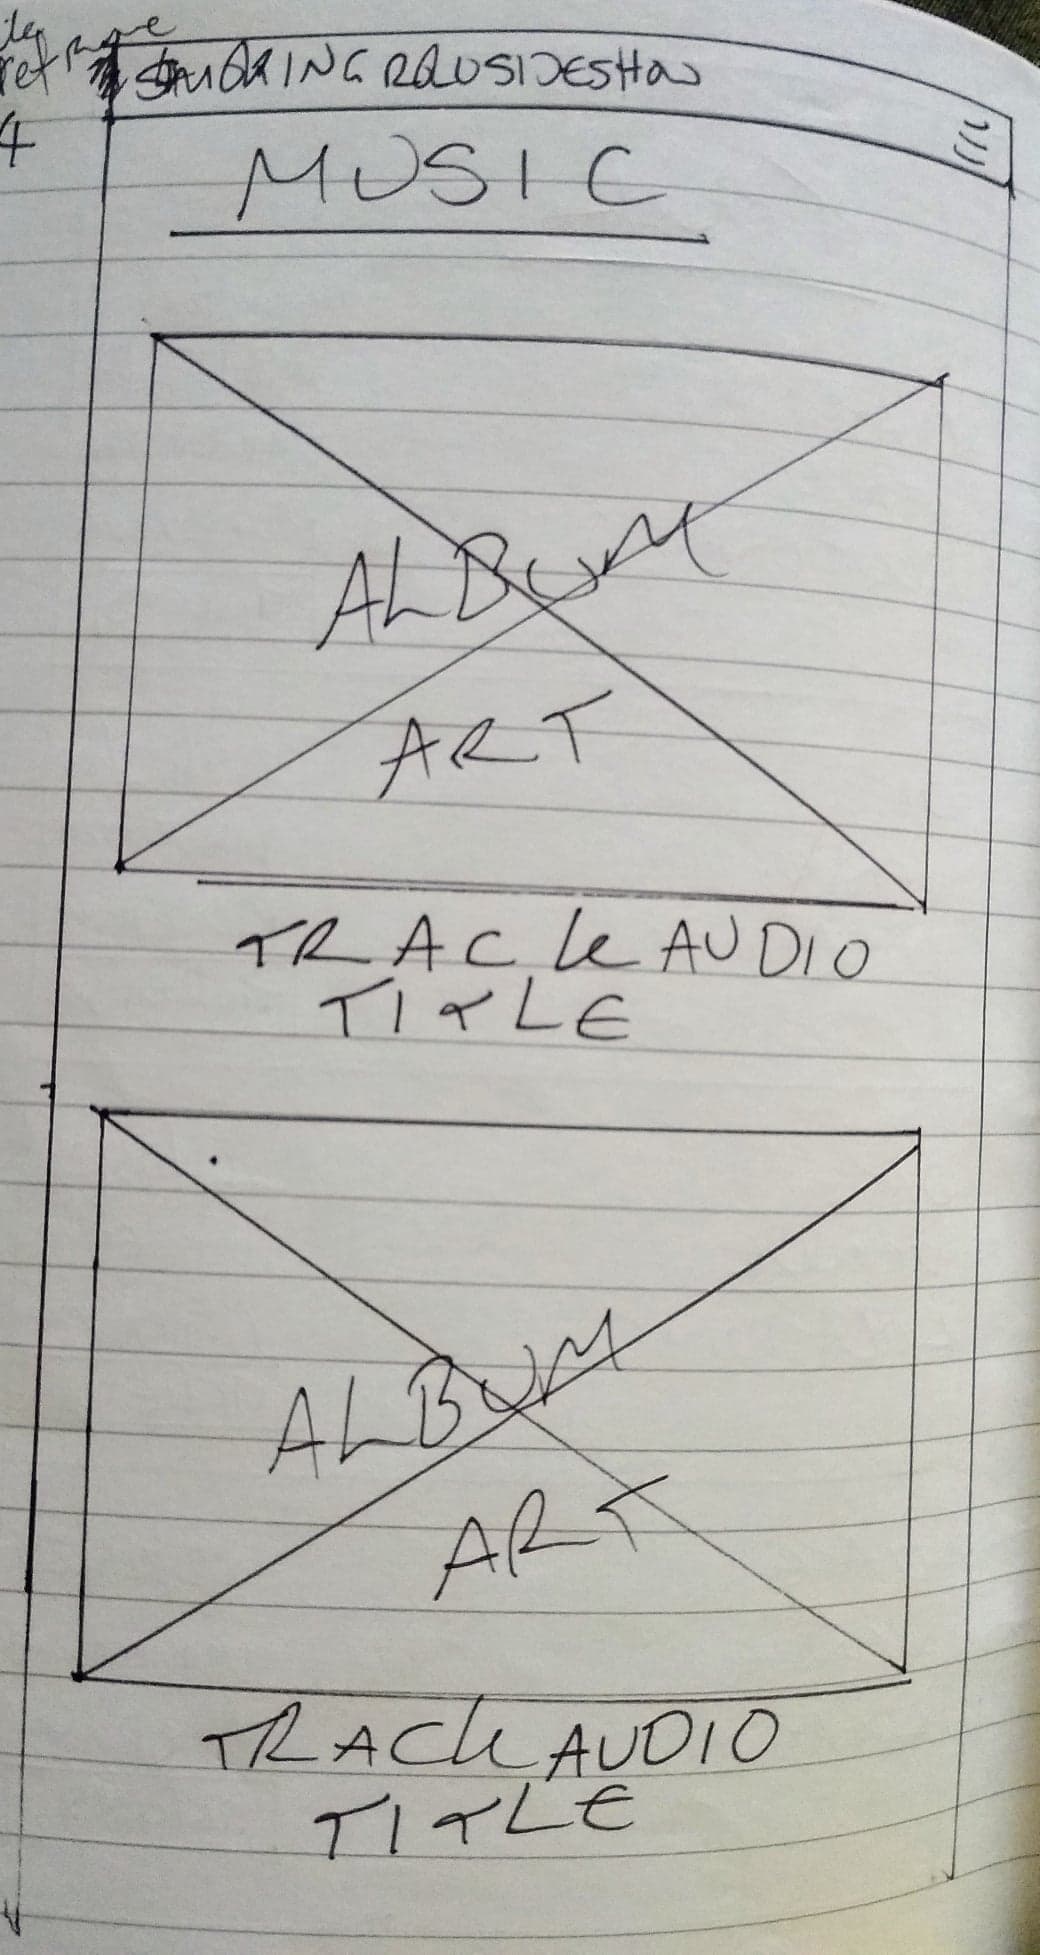 4
SMOKING ROLUSIDESHOW
MUSIC
ALBUM
ART
TRACK AUDIO
TITLE
ALBUM
ART
TRACK AUDIO
TITLE